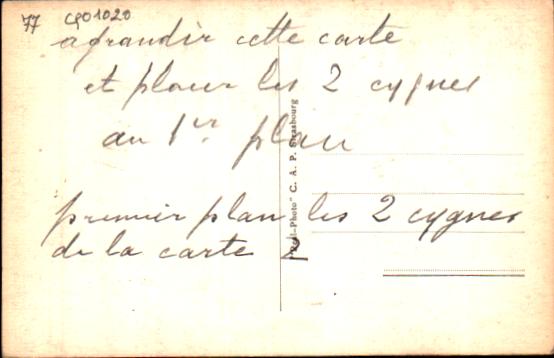 77 CP01020
agrandir cette carte
et placer les 2 cygnes
au 1er plan
premier plan les 2 cygnes
de la carte
"Real-Photo" C. A. P. Strasbourg